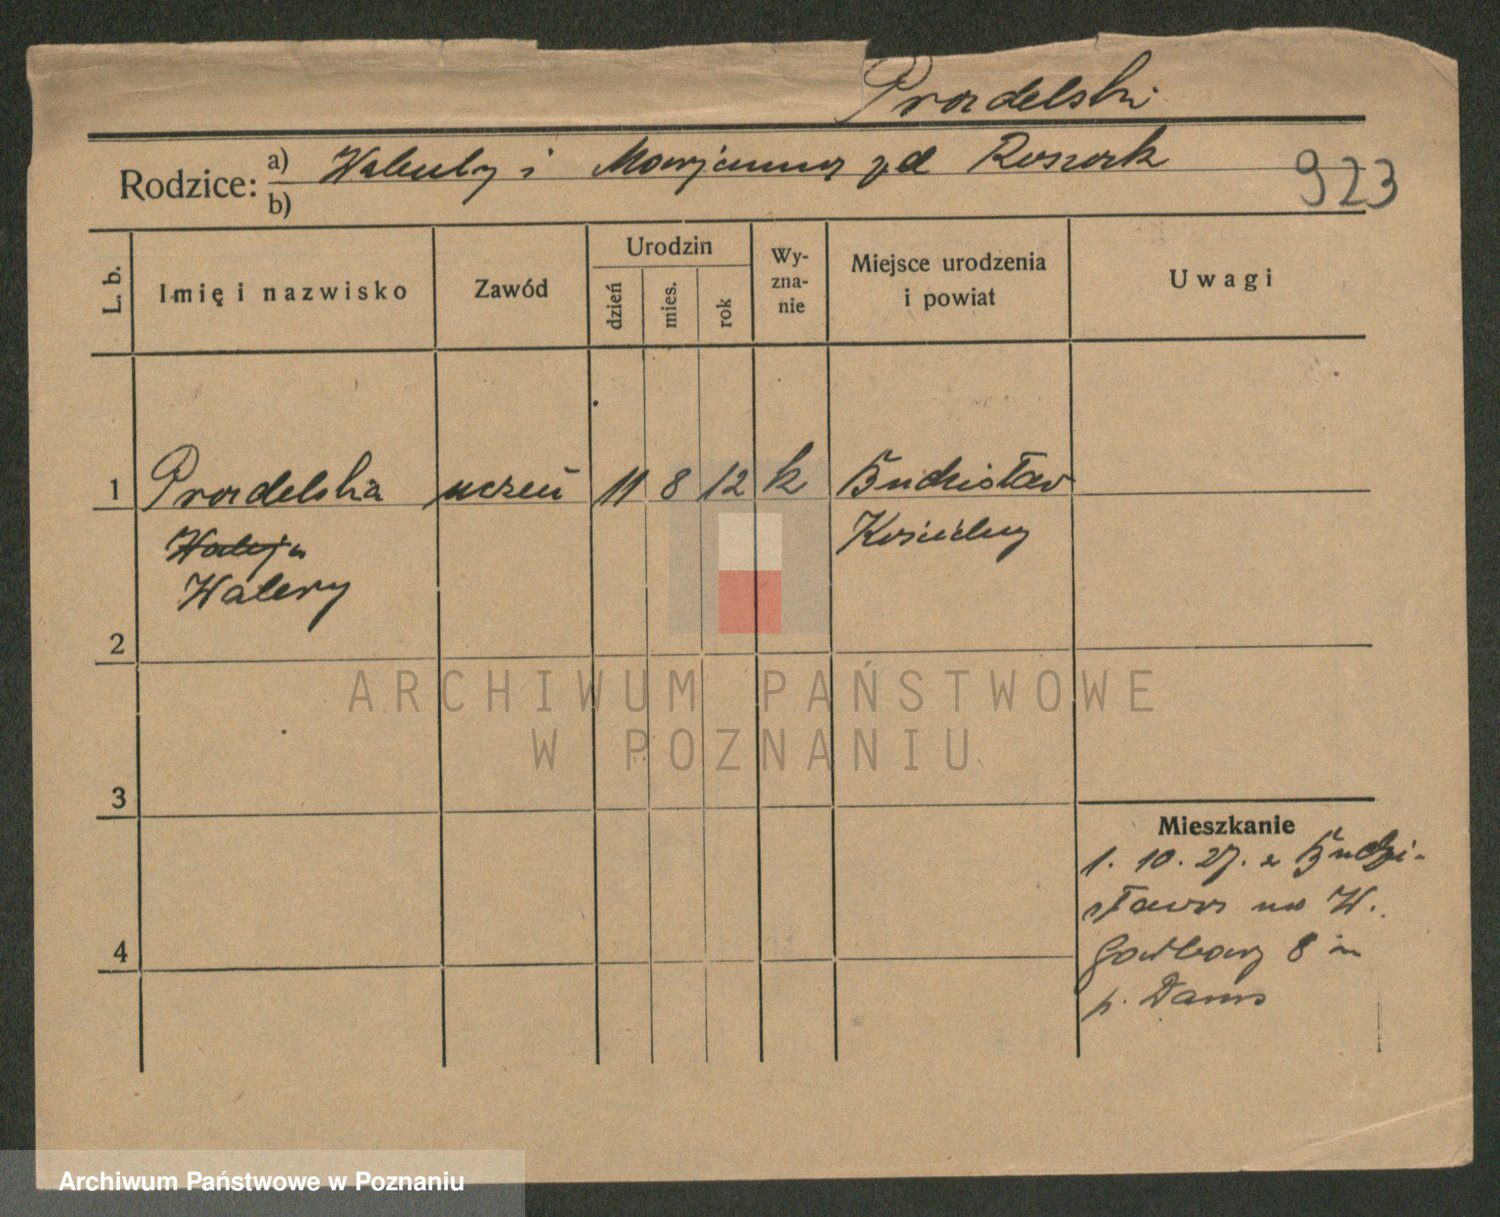 Prondelski
Rodzice: a) Walenty i Marjanna zd Roszak
b)
923
L. b.
Imię i nazwisko
Zawód
Urodzin
dzień
mies.
rok
Wy-
zna-
nie
Miejsce urodzenia
i powiat
Uwagi
1 Prondelska uczeń 11 8 12 k Budzisław
Kościelny
Walery
2
3
4
Mieszkanie
1. 10. 27. z Budzi-
sława na W.
Garbary 8 m
p. Dams
ARCHIWUM PAŃSTWOWE
W POZNANIU
Archiwum Państwowe w Poznaniu